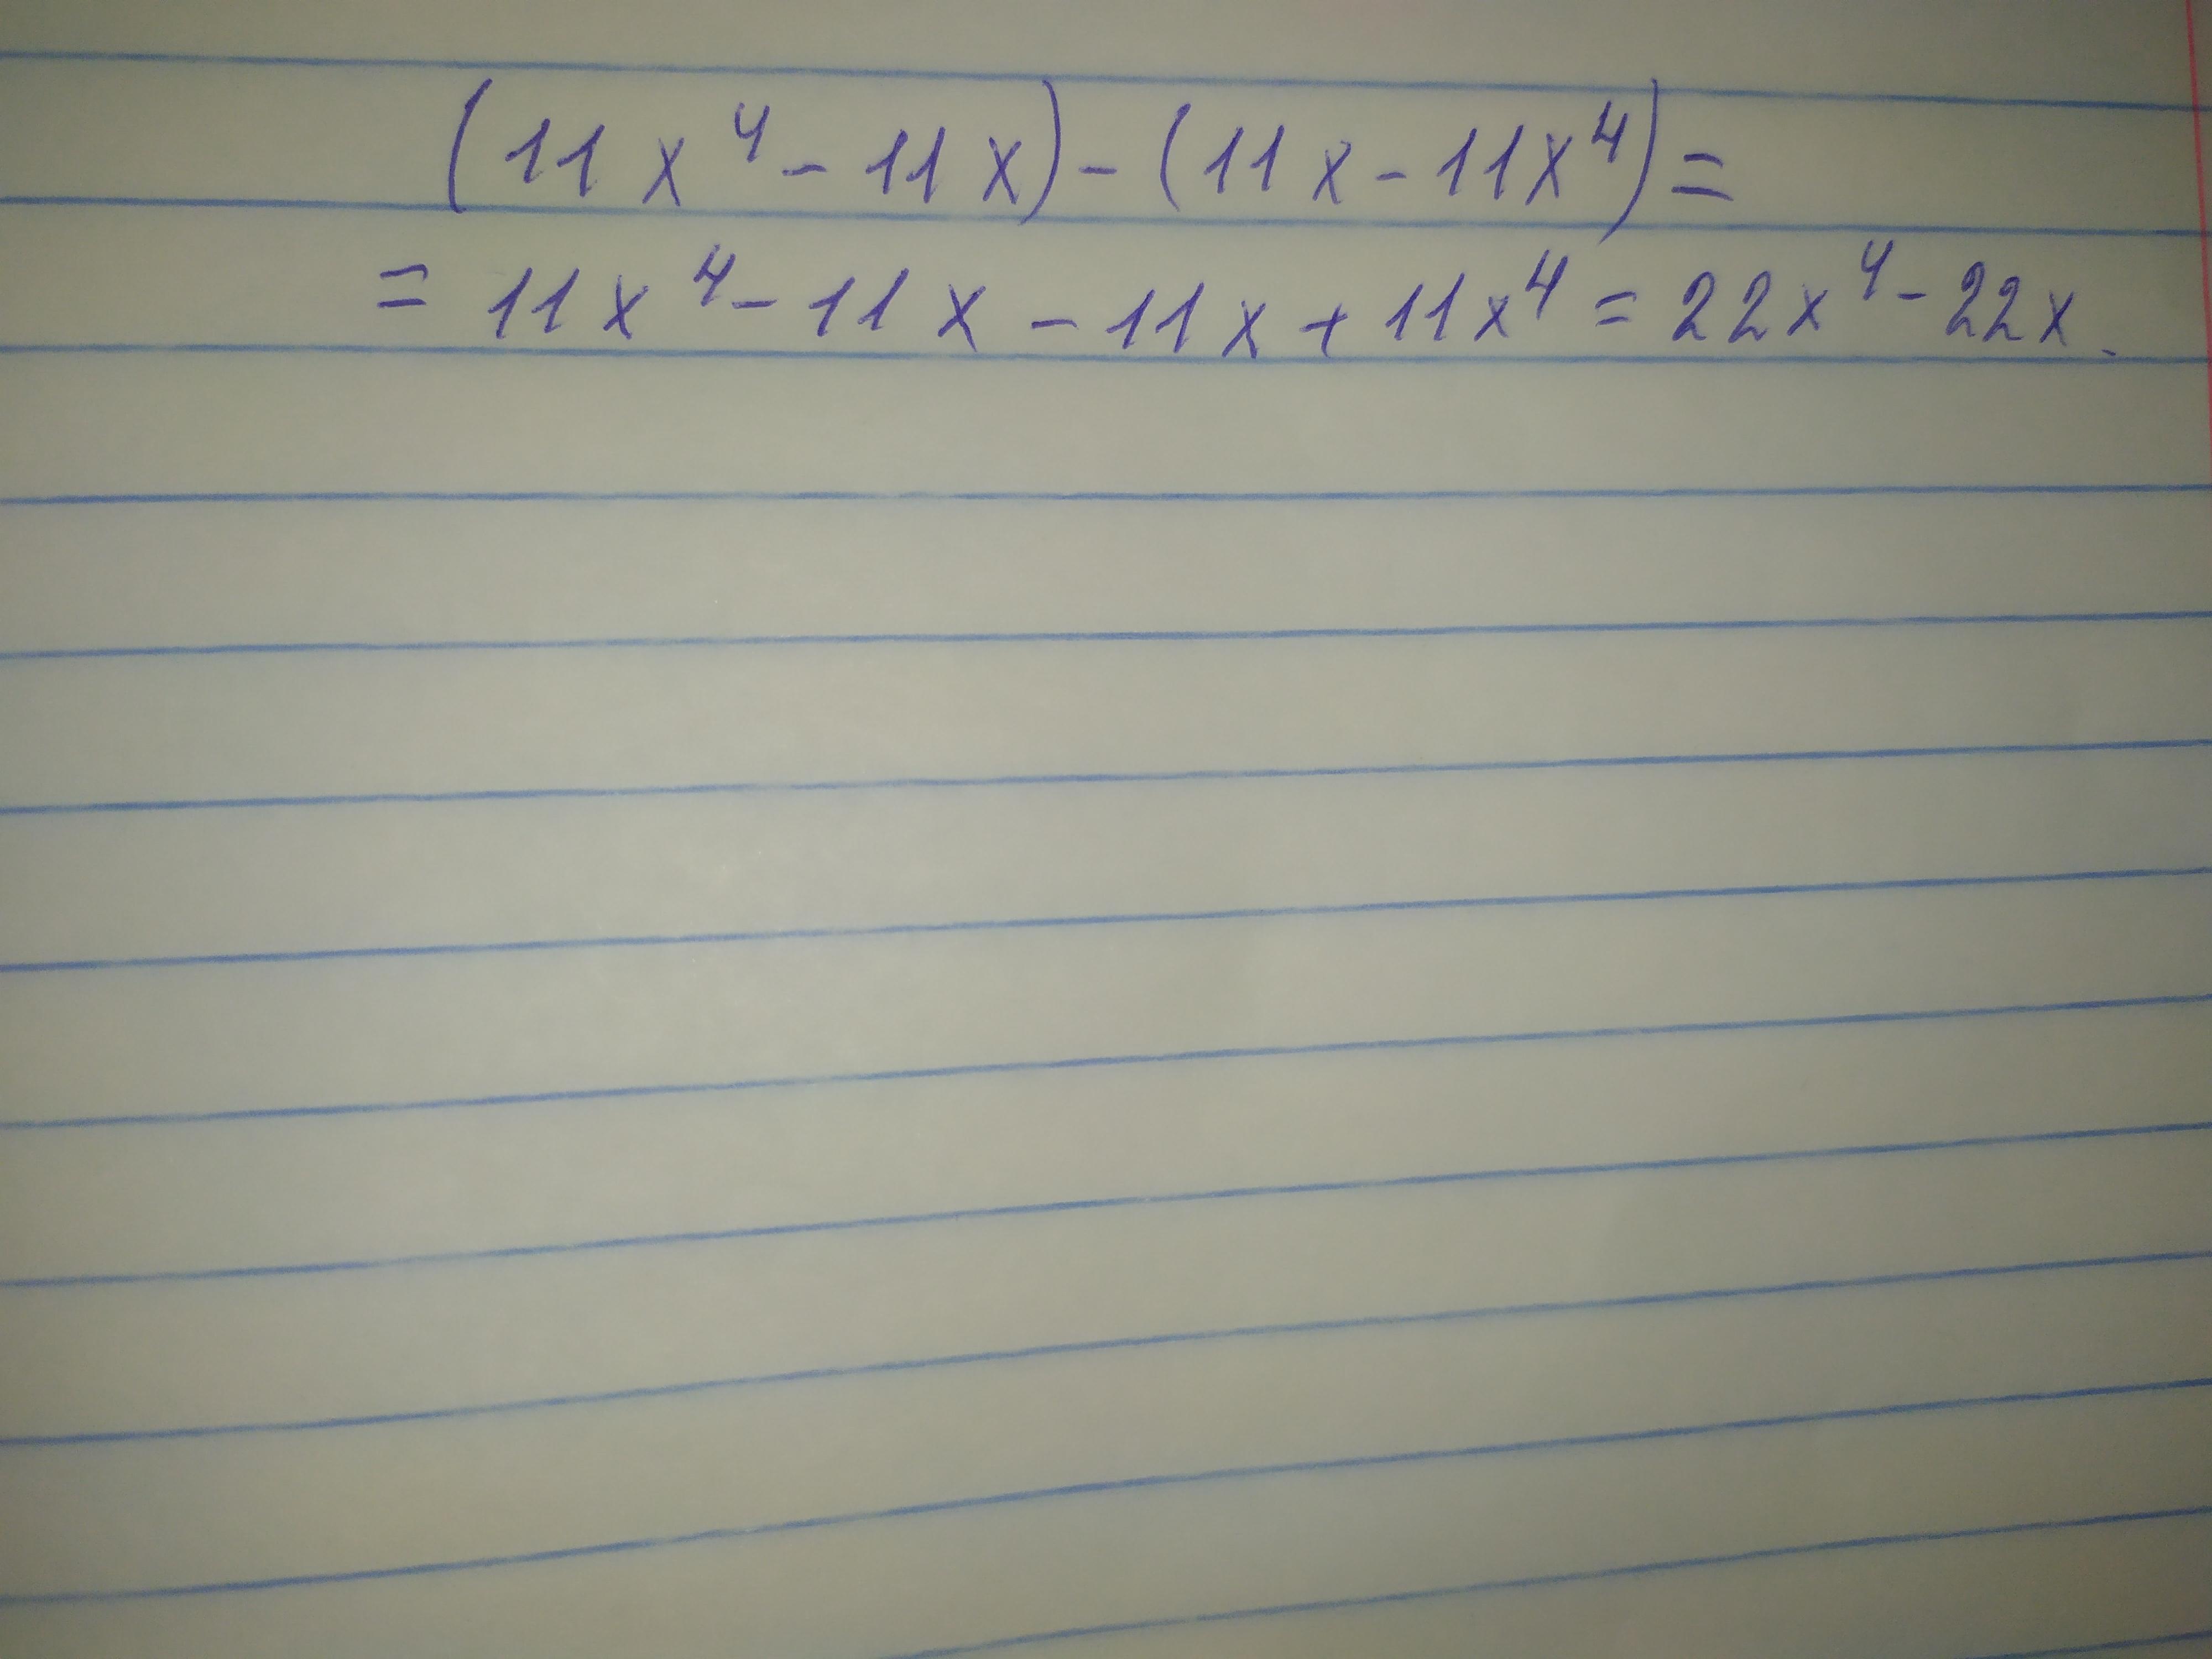 (11x⁴ - 11x) - (11x - 11x⁴) =
= 11x⁴ - 11x - 11x + 11x⁴ = 22x⁴ - 22x.